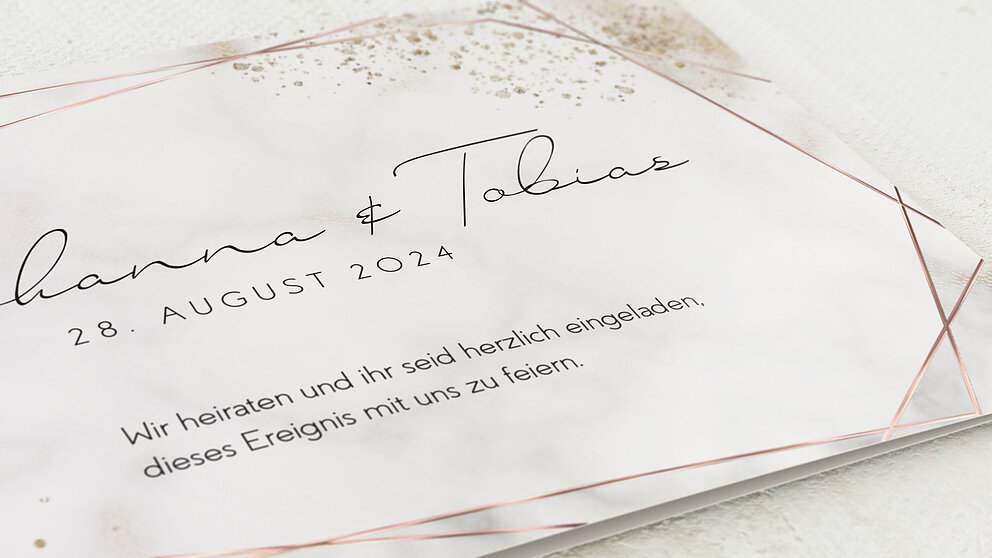 hanna & Tobias
28. AUGUST 2024
Wir heiraten und ihr seid herzlich eingeladen,
dieses Ereignis mit uns zu feiern.